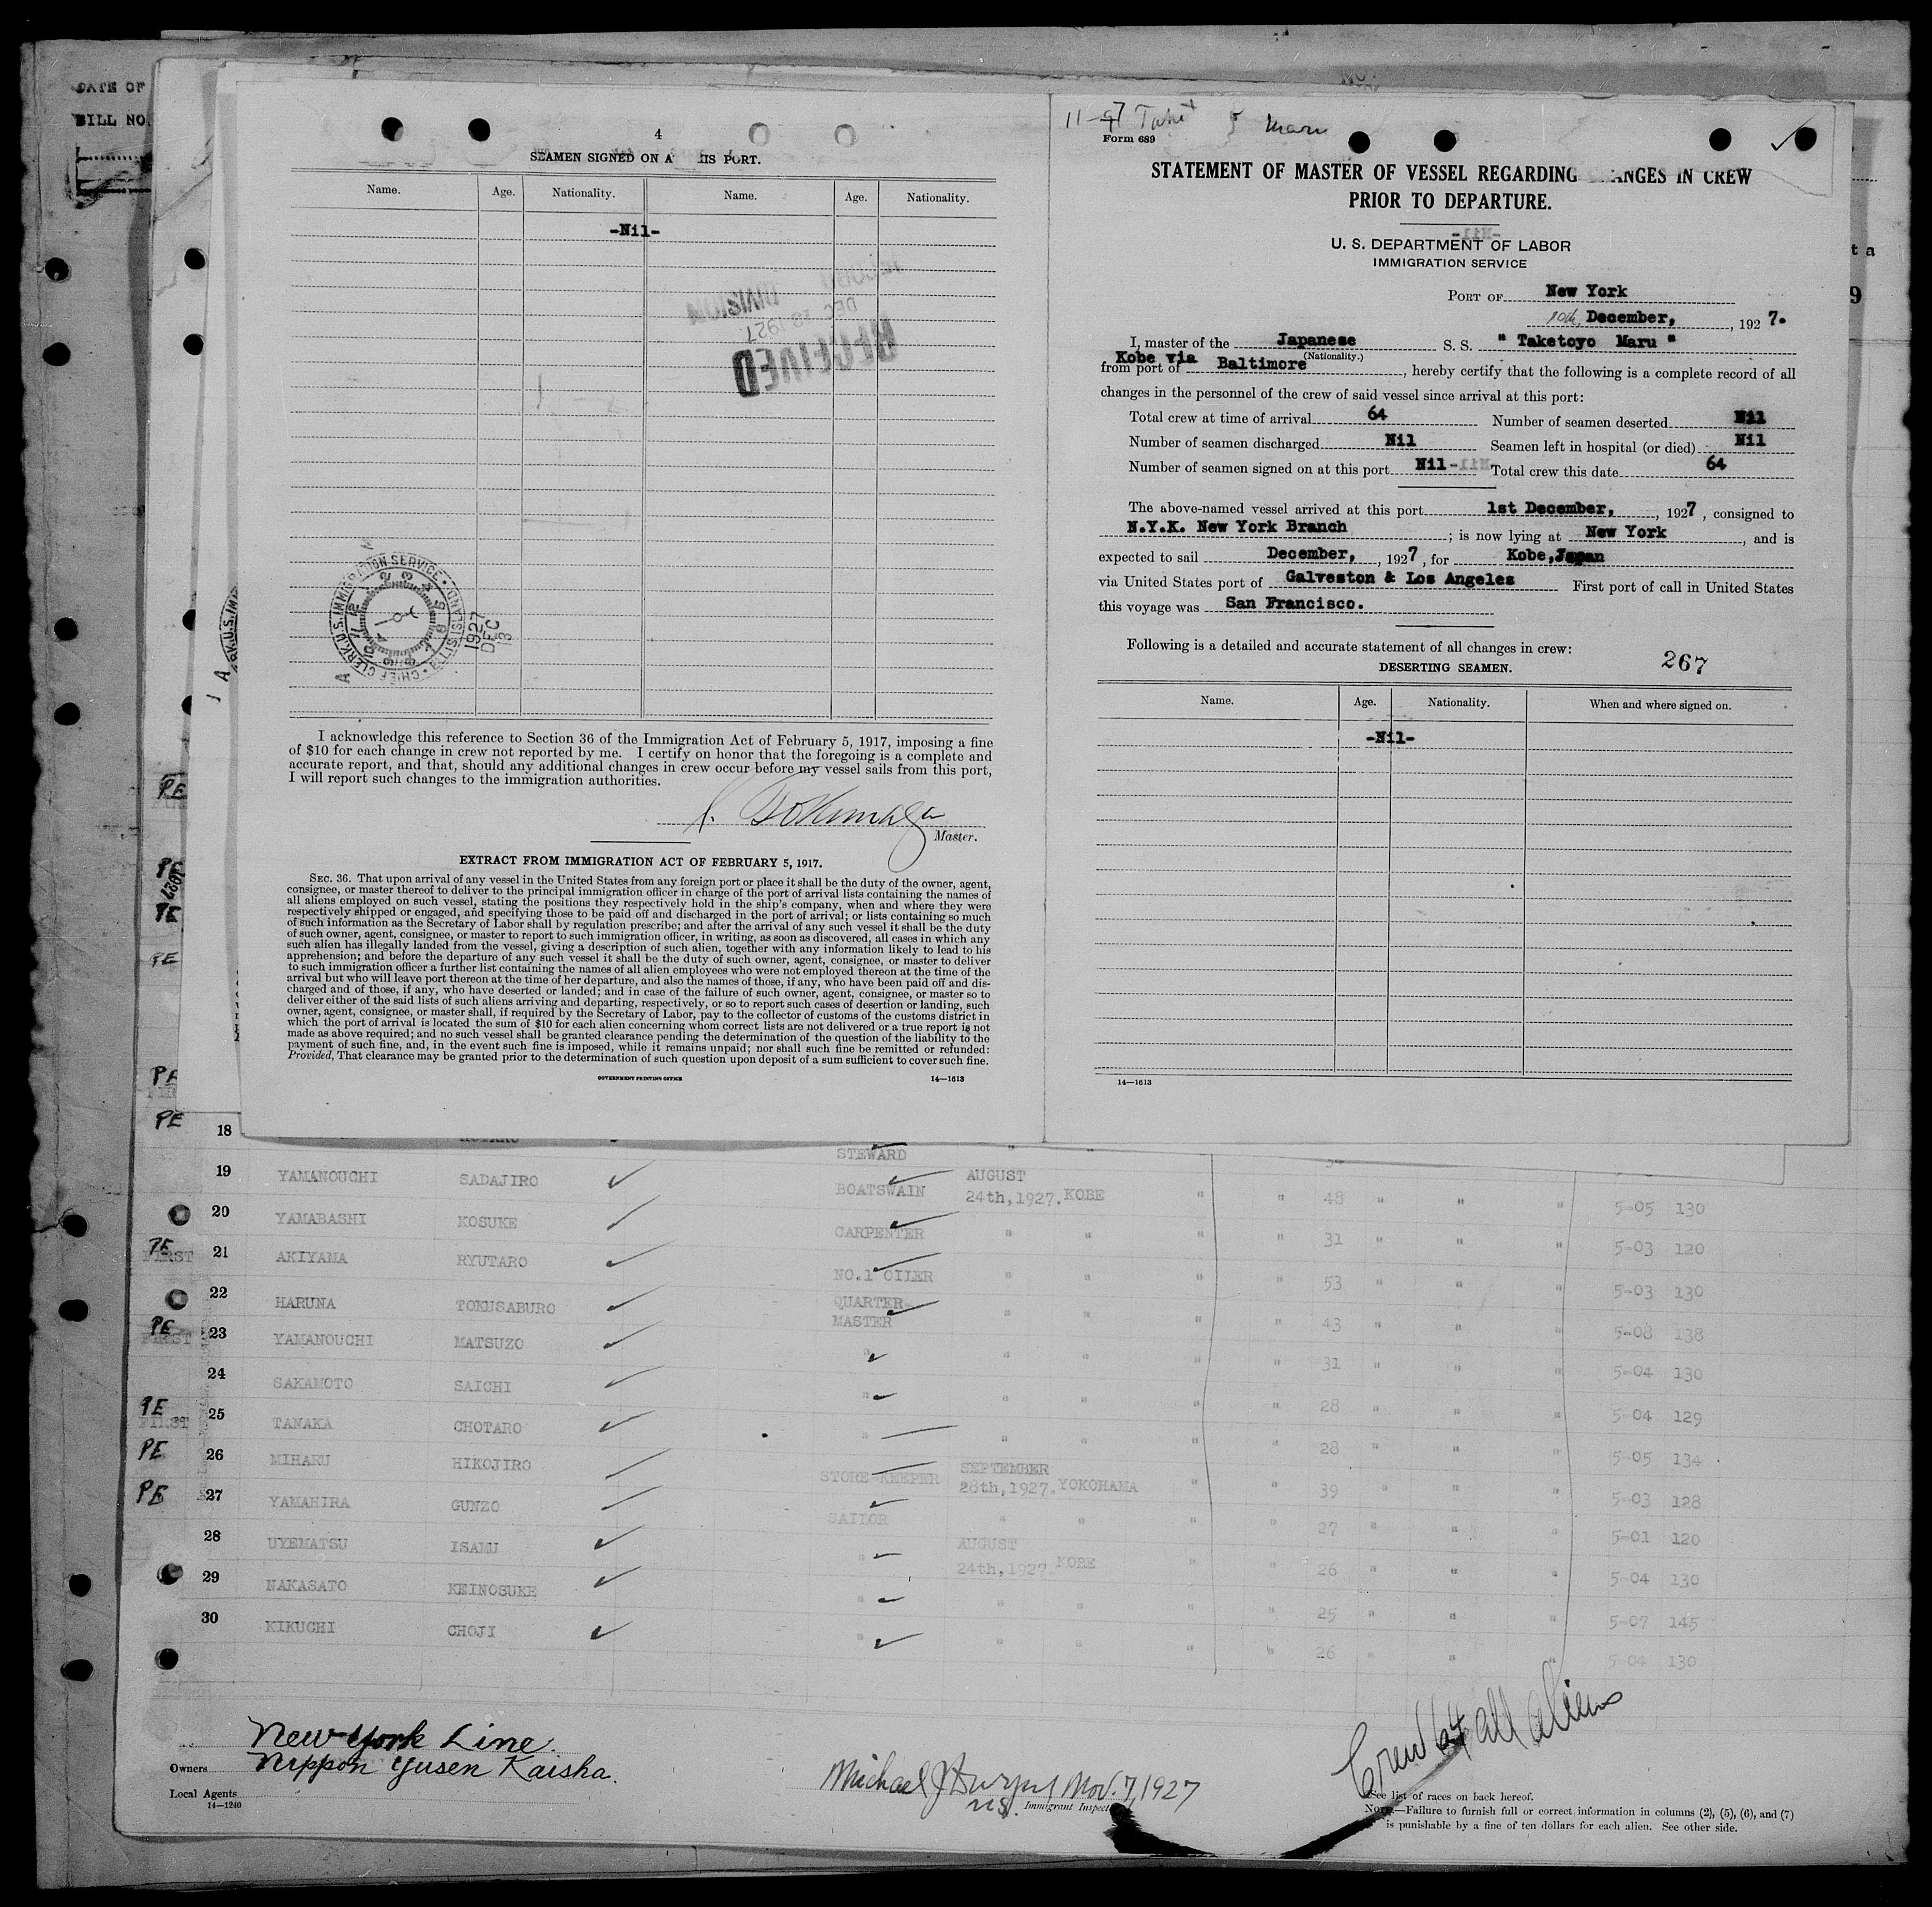 DATE OF
BILL NO.
4
SEAMEN SIGNED ON A HIS PORT.
Name. Age. Nationality. Name. Age. Nationality.
-Nil-
RECEIVED
DEC 13 1927
DIVISION
CHIEF CLERK U.S. IMMIGRATION SERVICE · ELLIS ISLAND ·
1927
DEC
13
I acknowledge this reference to Section 36 of the Immigration Act of February 5, 1917, imposing a fine
of $10 for each change in crew not reported by me. I certify on honor that the foregoing is a complete and
accurate report, and that, should any additional changes in crew occur before my vessel sails from this port,
I will report such changes to the immigration authorities.
Master.
EXTRACT FROM IMMIGRATION ACT OF FEBRUARY 5, 1917.
SEC. 36. That upon arrival of any vessel in the United States from any foreign port or place it shall be the duty of the owner, agent,
consignee, or master thereof to deliver to the principal immigration officer in charge of the port of arrival lists containing the names of
all aliens employed on such vessel, stating the positions they respectively hold in the ship's company, when and where they were
respectively shipped or engaged, and specifying those to be paid off and discharged in the port of arrival; or lists containing so much
of such information as the Secretary of Labor shall by regulation prescribe; and after the arrival of any such vessel it shall be the duty
of such owner, agent, consignee, or master to report to such immigration officer, in writing, as soon as discovered, all cases in which any
such alien has illegally landed from the vessel, giving a description of such alien, together with any information likely to lead to his
apprehension; and before the departure of any such vessel it shall be the duty of such owner, agent, consignee, or master to deliver
to such immigration officer a further list containing the names of all alien employees who were not employed thereon at the time of the
arrival but who will leave port thereon at the time of her departure, and also the names of those, if any, who have been paid off and dis-
charged and of those, if any, who have deserted or landed; and in case of the failure of such owner, agent, consignee, or master so to
deliver either of the said lists of such aliens arriving and departing, respectively, or so to report such cases of desertion or landing, such
owner, agent, consignee, or master shall, if required by the Secretary of Labor, pay to the collector of customs of the customs district in
which the port of arrival is located the sum of $10 for each alien concerning whom correct lists are not delivered or a true report is not
made as above required; and no such vessel shall be granted clearance pending the determination of the question of the liability to the
payment of such fine, and, in the event such fine is imposed, while it remains unpaid; nor shall such fine be remitted or refunded:
Provided, That clearance may be granted prior to the determination of such question upon deposit of a sum sufficient to cover such fine.
GOVERNMENT PRINTING OFFICE 14—1613
Maru
Form 689
STATEMENT OF MASTER OF VESSEL REGARDING ANGES IN CREW
PRIOR TO DEPARTURE.
U. S. DEPARTMENT OF LABOR
IMMIGRATION SERVICE
PORT OF New York
10th, December, , 192 7.
I, master of the Japanese S. S. " Taketoyo Maru "
(Nationality.)
from port of Kobe via Baltimore , hereby certify that the following is a complete record of all
changes in the personnel of the crew of said vessel since arrival at this port:
Total crew at time of arrival 64 Number of seamen deserted Nil
Number of seamen discharged Nil Seamen left in hospital (or died) Nil
Number of seamen signed on at this port Nil Total crew this date 64
The above-named vessel arrived at this port 1st December, , 1927 , consigned to
N.Y.K. New York Branch ; is now lying at New York , and is
expected to sail December, , 1927 , for Kobe,Japan
via United States port of Galveston & Los Angeles First port of call in United States
this voyage was San Francisco.
Following is a detailed and accurate statement of all changes in crew:
267
DESERTING SEAMEN.
Name. Age. Nationality. When and where signed on.
-Nil-
14—1613
PE 18
STEWARD
19 YAMANOUCHI SADAJIRO BOATSWAIN AUGUST 24th,1927. KOBE " " 48 " " " 5-05 130
20 YAMABASHI KOSUKE CARPENTER " " " " 31 " " " 5-03 120
PE FIRST 21 AKIYAMA RYUTARO NO.1 OILER " " " " 53 " " " 5-03 130
22 HARUNA TOKUSABURO QUARTER-MASTER " " " " 43 " " " 5-08 138
PE FIRST 23 YAMANOUCHI MATSUZO " " " " " 31 " " " 5-04 130
24 SAKAMOTO SAICHI " " " " " 28 " " " 5-04 129
PE FIRST 25 TANAKA CHOTARO " " " " " 28 " " " 5-05 134
PE 26 MIHARU HIKOJIRO STORE-KEEPER SEPTEMBER 28th,1927. YOKOHAMA " " 39 " " " 5-03 128
PE 27 YAMAHIRA GUNZO SAILOR " " " " 27 " " " 5-01 120
28 UYEMATSU ISAMU " AUGUST 24th,1927 KOBE " " 26 " " " 5-04 130
29 NAKASATO KEINOSUKE " " " " " 25 " " " 5-07 145
30 KIKUCHI CHOJI " " " " " 26 " " " 5-04 130
New York Line.
Owners Nippon Yusen Kaisha.
Local Agents
14—1240
Michael J Nov. 7, 1927
Immigrant Inspect
Crew 64 all aliens
See list of races on back hereof.
NOTE.—Failure to furnish full or correct information in columns (2), (5), (6), and (7)
is punishable by a fine of ten dollars for each alien. See other side.